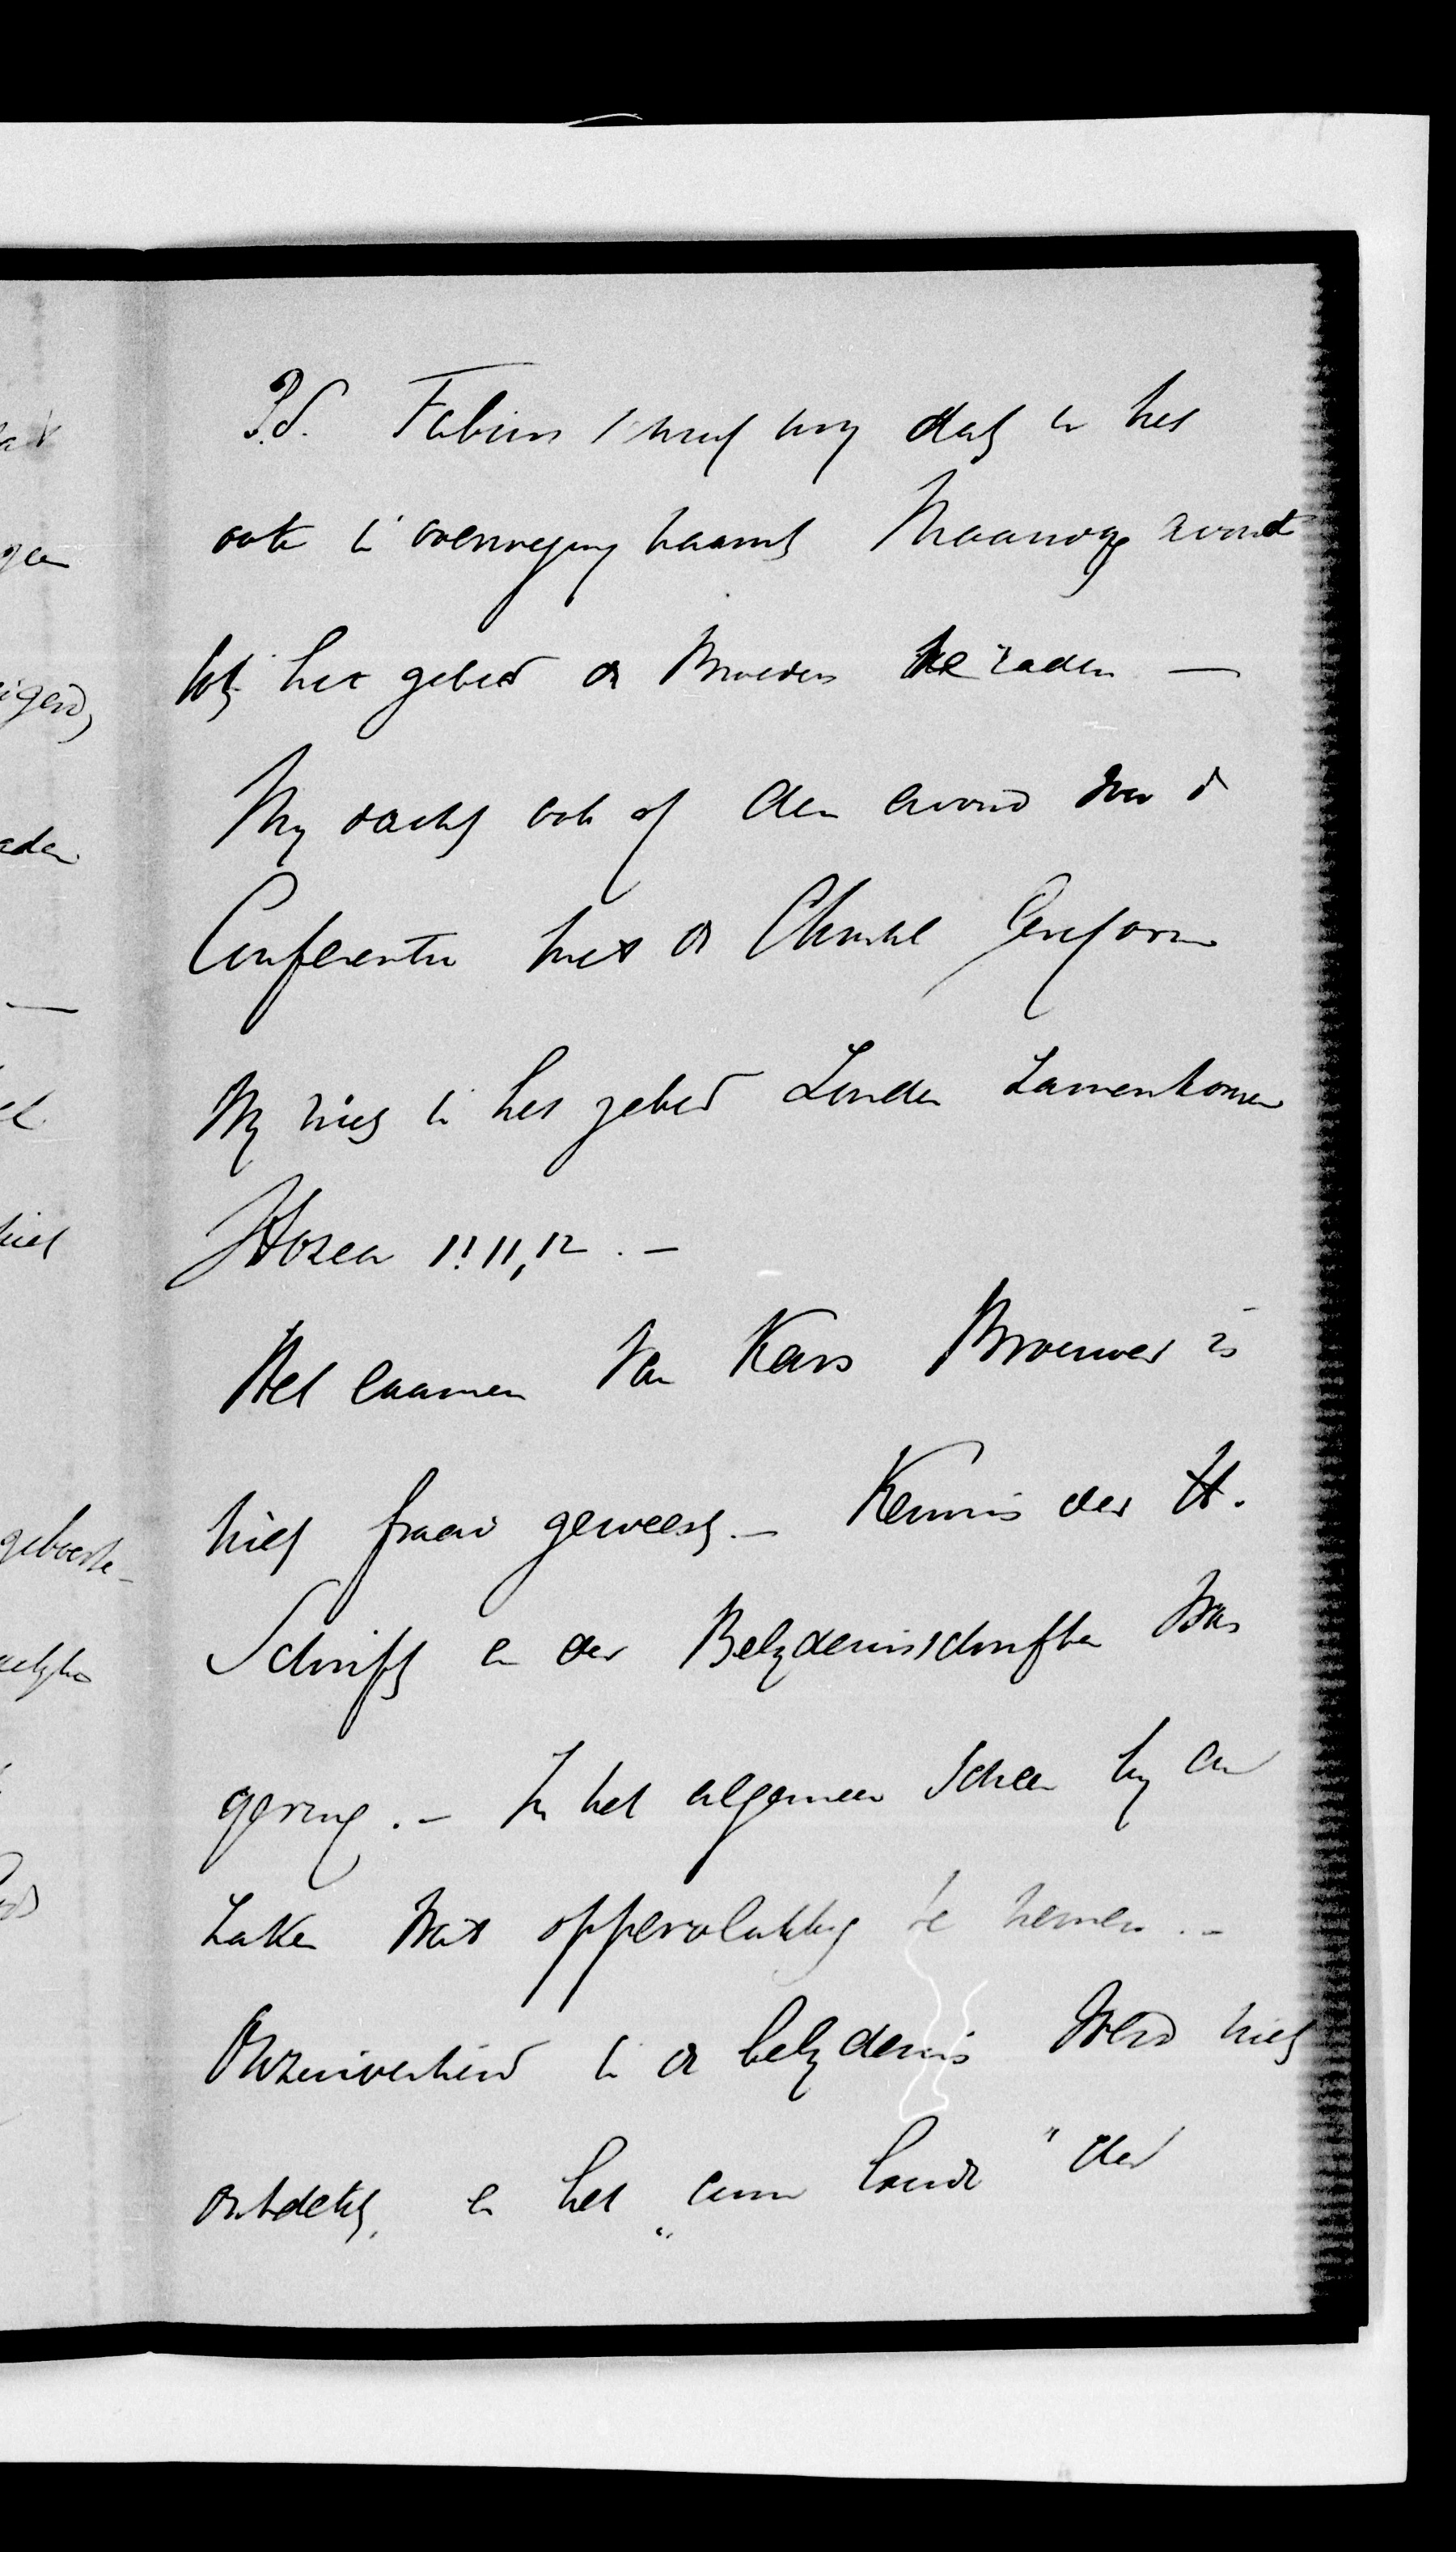 P.S. Fabius schreef my dat U het
ook in overweging naamt Maandag avond
tot het gebed de Broeders te raden —
My dacht ook of den avond van d
Conferentie met de Christel Gereform
Wy niet in het gebed zouden zamenkomen
Hosea 1:11,12. —
Het examen van Kars Brouwer is
niet fraai geweest. — Kennis der H.
Schrift en der Belydenisschriften was
gering. — In het algemeen scheen hy de
zaken wat oppervlakkig te nemen. —
Onzuiverheid in de belydenis werd niet
ontdekt, en het „ " der